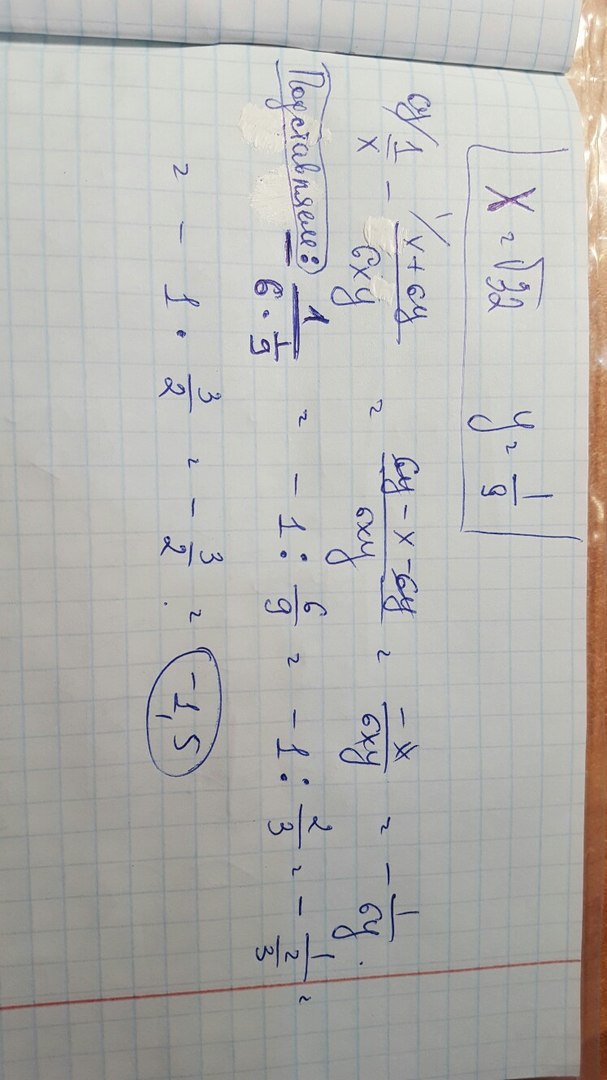 x = √32 y = 1/9
6y/ 1/x - 1/ (x+6y)/6xy = (6y-x-6y)/6xy = -x/6xy = - 1/6y.
Подставляем: - 1/(6·1/9) = -1 : 6/9 = -1 : 2/3 = - 1/(2/3) =
= -1 · 3/2 = - 3/2 = -1,5